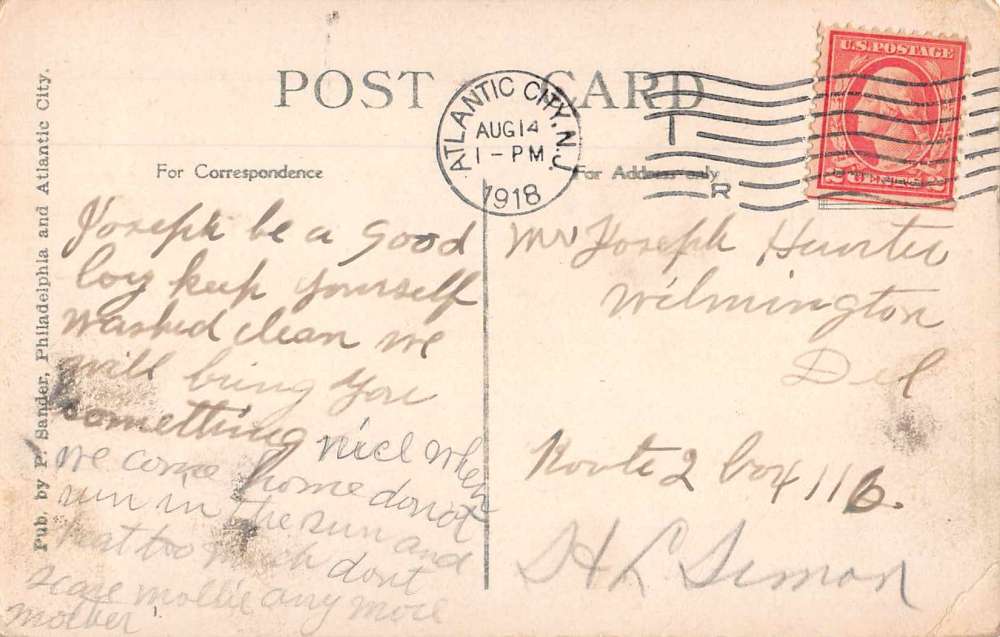 Pub. by P. Sander, Philadelphia and Atlantic City.
POST CARD
ATLANTIC CITY, N.J.
AUG 14
1 - PM
1918
R
U.S. POSTAGE
2 CENTS 2
For Correspondence
For Address only
Joseph be a good
boy keep yourself
washed clean we
will bring you
something nice when
we come home donot
run in the sun and
heat too much dont
scare mollie any more
mother
Mr Joseph Hunter
Wilmington
Del
Route 2 box 116.
H L Simon